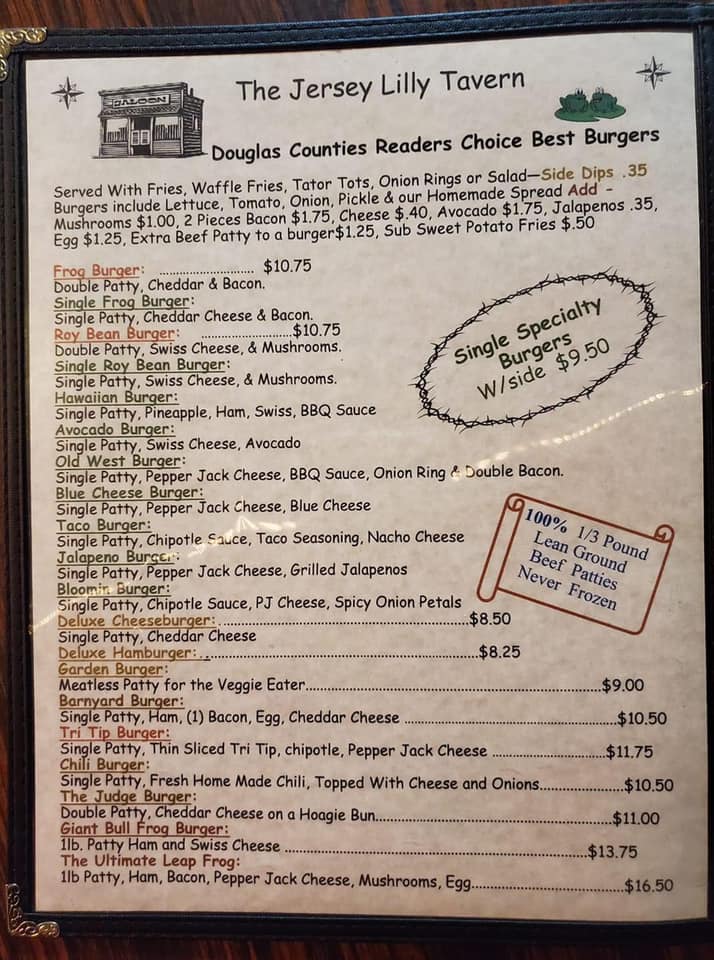 SALOON
The Jersey Lilly Tavern
Douglas Counties Readers Choice Best Burgers
Served With Fries, Waffle Fries, Tator Tots, Onion Rings or Salad—Side Dips .35
Burgers include Lettuce, Tomato, Onion, Pickle & our Homemade Spread Add -
Mushrooms $1.00, 2 Pieces Bacon $1.75, Cheese $.40, Avocado $1.75, Jalapenos .35,
Egg $1.25, Extra Beef Patty to a burger$1.25, Sub Sweet Potato Fries $.50
Frog Burger: ............................ $10.75
Double Patty, Cheddar & Bacon.
Single Frog Burger:
Single Patty, Cheddar Cheese & Bacon.
Roy Bean Burger: ...........................$10.75
Double Patty, Swiss Cheese, & Mushrooms.
Single Roy Bean Burger:
Single Patty, Swiss Cheese, & Mushrooms.
Hawaiian Burger:
Single Patty, Pineapple, Ham, Swiss, BBQ Sauce
Avocado Burger:
Single Patty, Swiss Cheese, Avocado
Old West Burger:
Single Patty, Pepper Jack Cheese, BBQ Sauce, Onion Ring & Double Bacon.
Blue Cheese Burger:
Single Patty, Pepper Jack Cheese, Blue Cheese
Taco Burger:
Single Patty, Chipotle Sauce, Taco Seasoning, Nacho Cheese
Jalapeno Burger:
Single Patty, Pepper Jack Cheese, Grilled Jalapenos
Bloomin Burger:
Single Patty, Chipotle Sauce, PJ Cheese, Spicy Onion Petals
Single Specialty
Burgers
W/side $9.50
100% 1/3 Pound
Lean Ground
Beef Patties
Never Frozen
Deluxe Cheeseburger:..............................................................$8.50
Single Patty, Cheddar Cheese
Deluxe Hamburger:..................................................................$8.25
Garden Burger:
Meatless Patty for the Veggie Eater.......................................................................$9.00
Barnyard Burger:
Single Patty, Ham, (1) Bacon, Egg, Cheddar Cheese ....................................................$10.50
Tri Tip Burger:
Single Patty, Thin Sliced Tri Tip, chipotle, Pepper Jack Cheese ............................$11.75
Chili Burger:
Single Patty, Fresh Home Made Chili, Topped With Cheese and Onions.....................$10.50
The Judge Burger:
Double Patty, Cheddar Cheese on a Hoagie Bun.........................................................$11.00
Giant Bull Frog Burger:
1lb. Patty Ham and Swiss Cheese ..........................................................................$13.75
The Ultimate Leap Frog:
1lb Patty, Ham, Bacon, Pepper Jack Cheese, Mushrooms, Egg.....................................$16.50